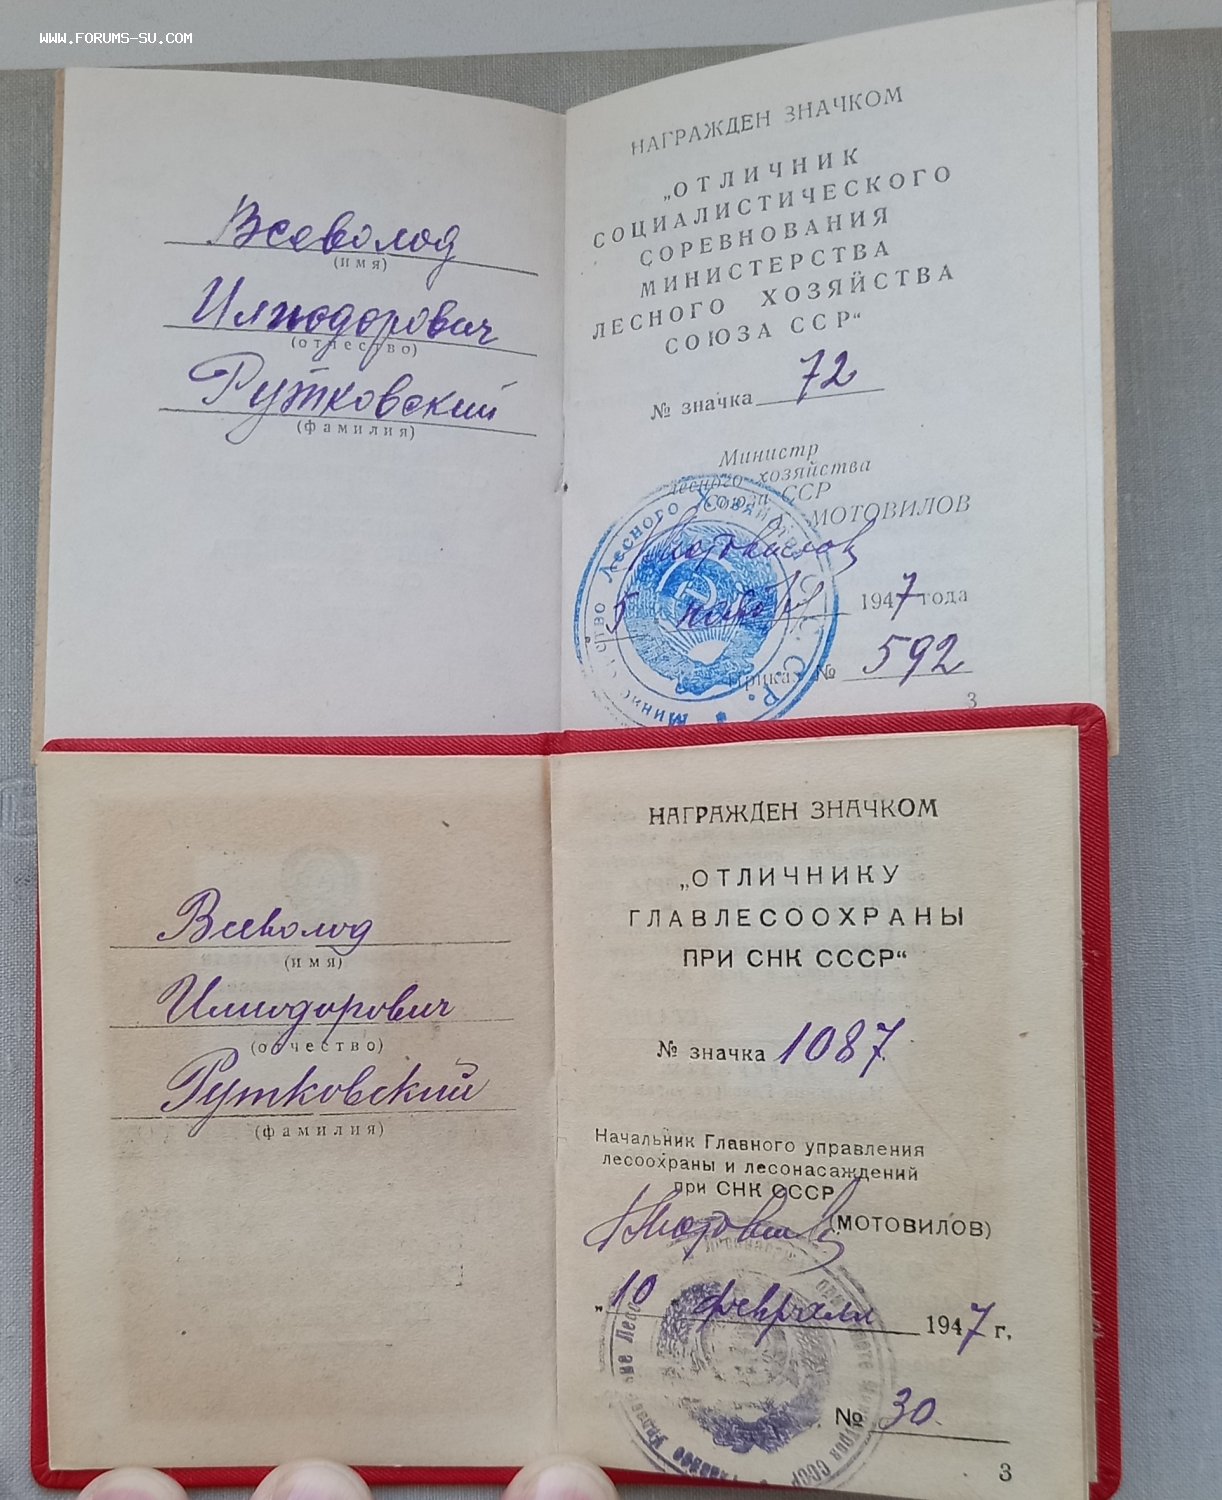 WWW.FORUMS-SU.COM
Всеволод
(имя)
Илиодорович
(отчество)
Рутковский
(фамилия)
НАГРАЖДЕН ЗНАЧКОМ
„ОТЛИЧНИК
СОЦИАЛИСТИЧЕСКОГО
СОРЕВНОВАНИЯ
МИНИСТЕРСТВА
ЛЕСНОГО ХОЗЯЙСТВА
СОЮЗА ССР“
№ значка 72
Министр
лесного хозяйства
Союза ССР
МОТОВИЛОВ
5 1947 года
Приказ № 592
3
Всеволод
(имя)
Илиодорович
(отчество)
Рутковский
(фамилия)
НАГРАЖДЕН ЗНАЧКОМ
„ОТЛИЧНИКУ
ГЛАВЛЕСООХРАНЫ
ПРИ СНК СССР“
№ значка 1087
Начальник Главного управления
лесоохраны и лесонасаждений
при СНК СССР
(МОТОВИЛОВ)
„10 февраля 1947 г.
№ 30
3